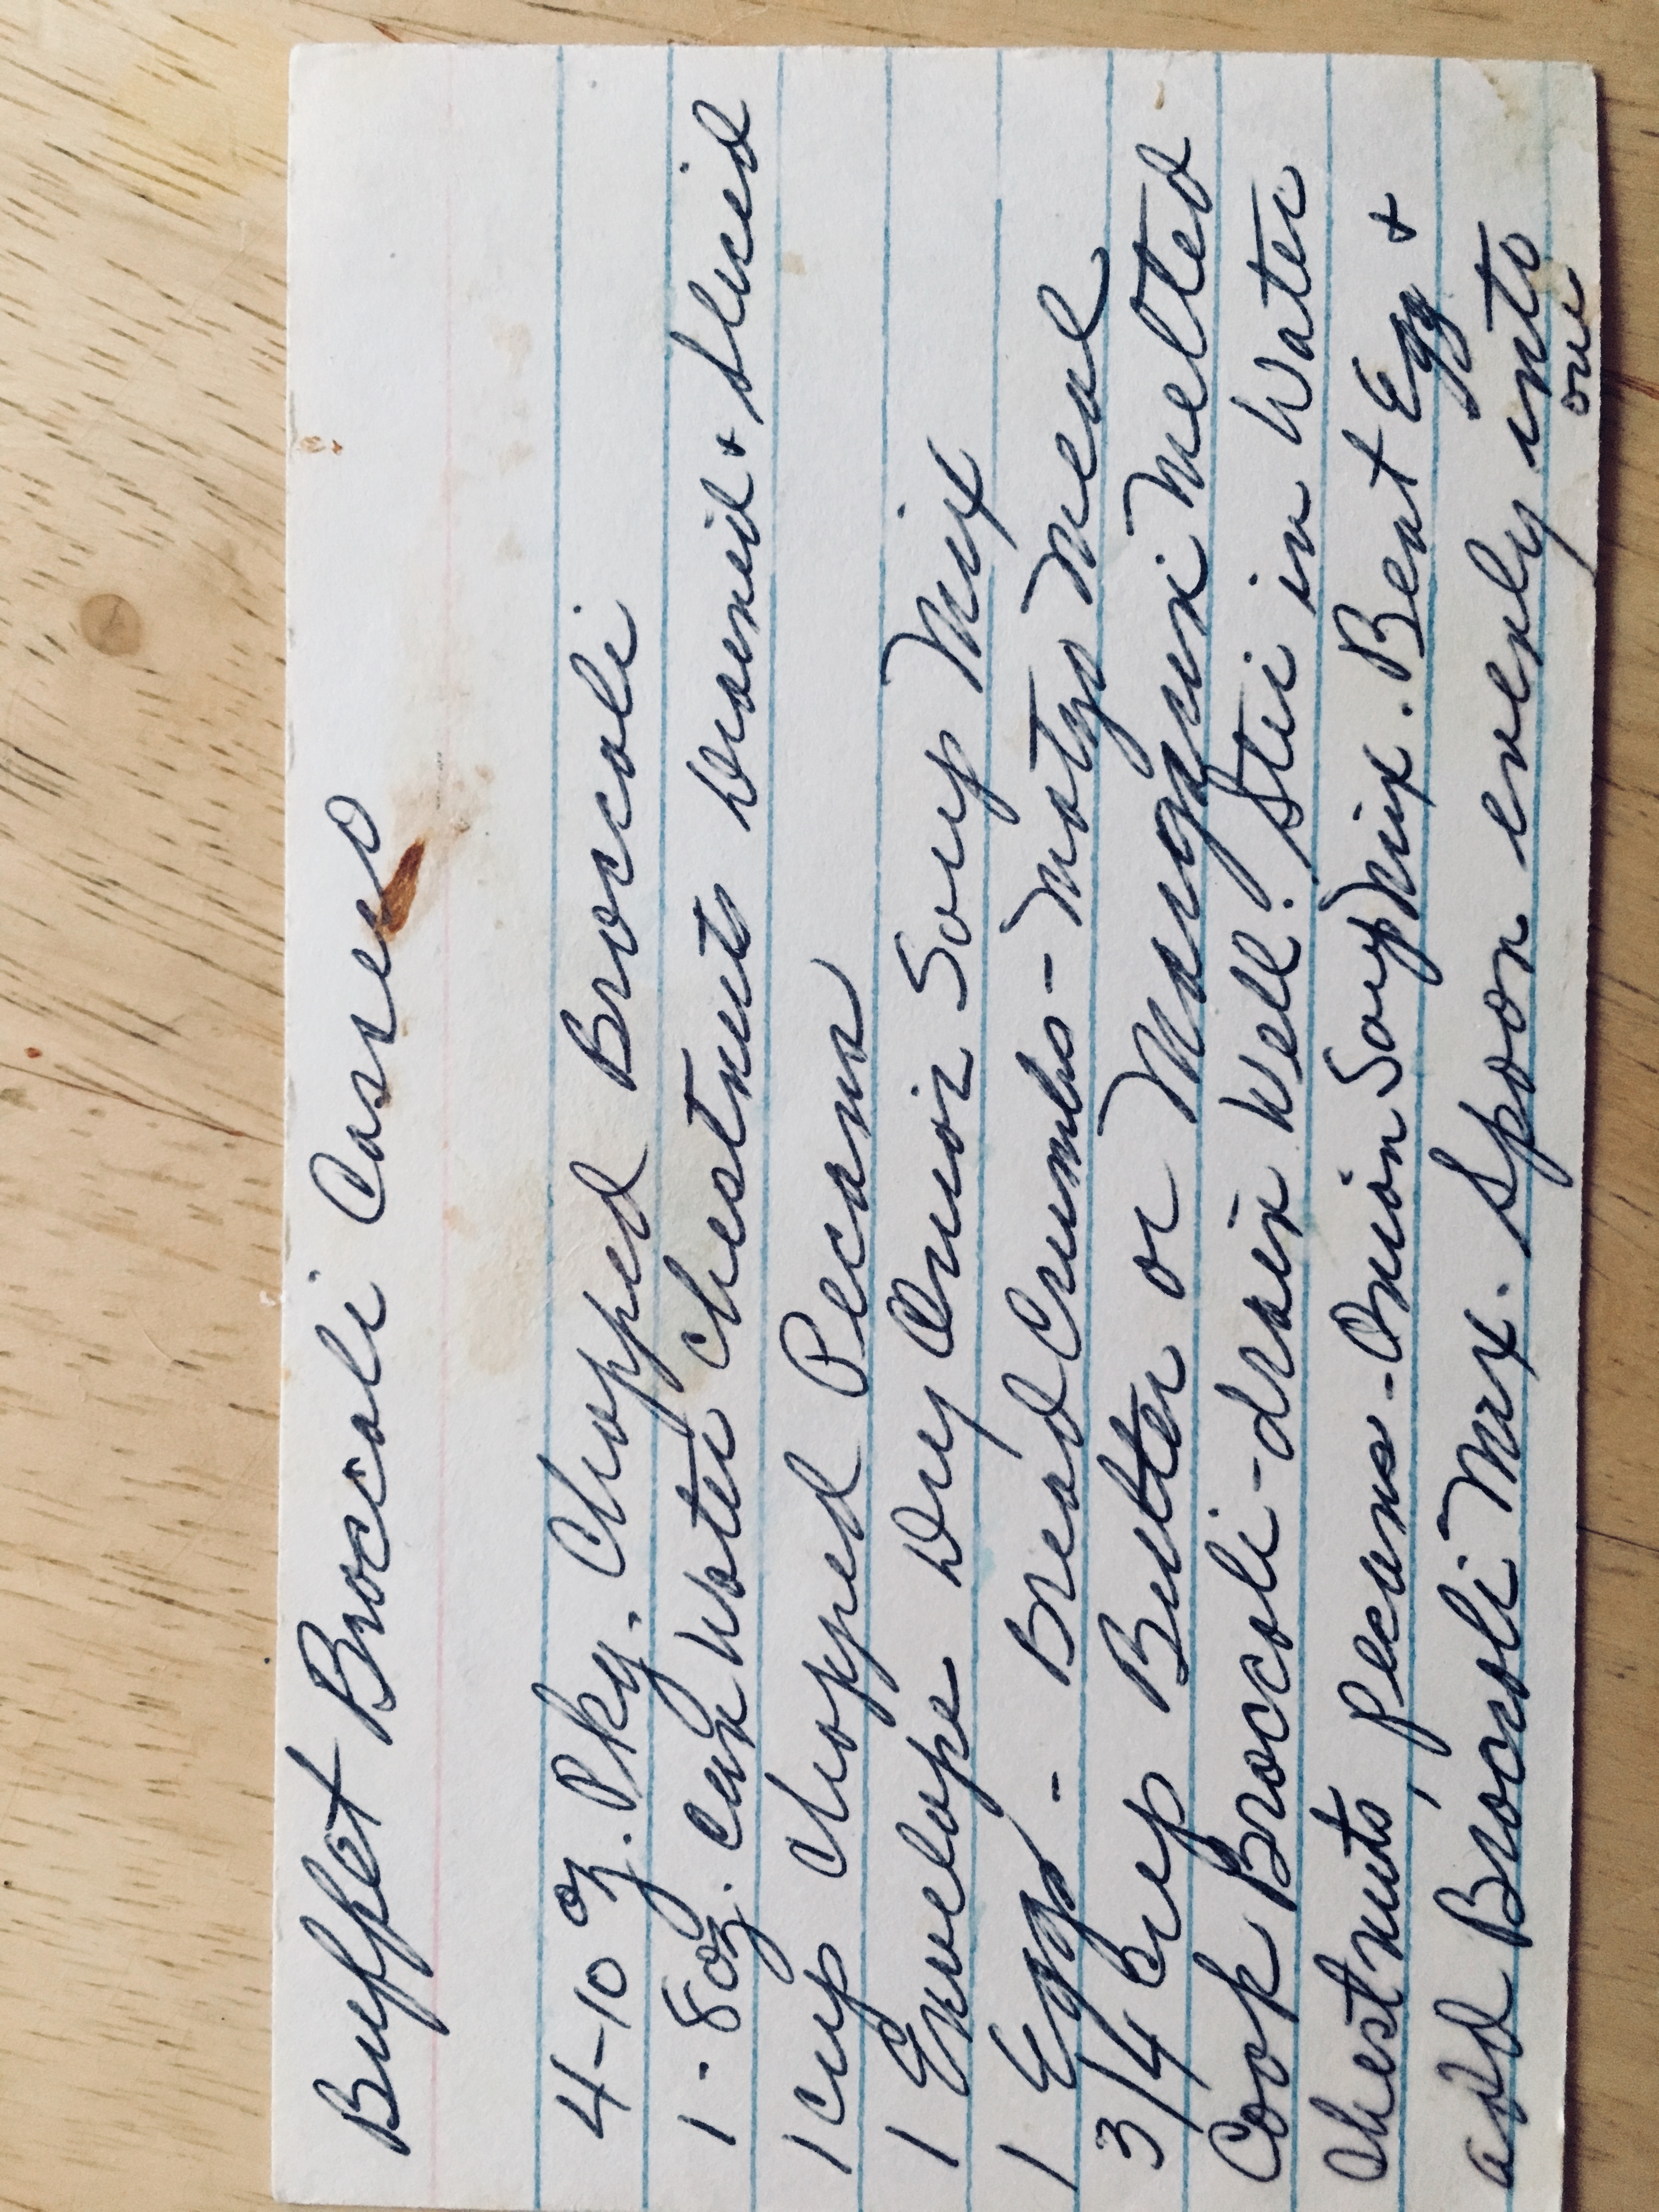 Buffet Broccoli Casses
4-10 oz. Pkg. Chopped Broccoli
1-8oz. can water chestnuts drained & sliced
1 cup chopped Pecans
1 Envelope Dry Onion Soup Mix
1 Egg - Bread Crumbs - Motzo Meal
3/4 cup Butter or Margarine Melted
Cook Broccoli-drain well. Stir in Water
Chestnuts, pecans-Onion Soup Mix. Beat Egg &
add Broccoli Mix. Spoon evenly into
over